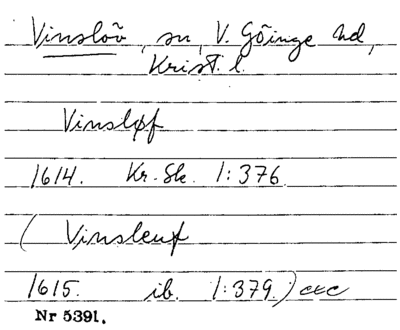 Vinslöv, sn, V. Göinge hd,
Krist. l.
Vinsløf
1614. Kr. Sk. 1:376
( Vinsleuf
1615. ib. 1:379.) etc
Nr 5391.